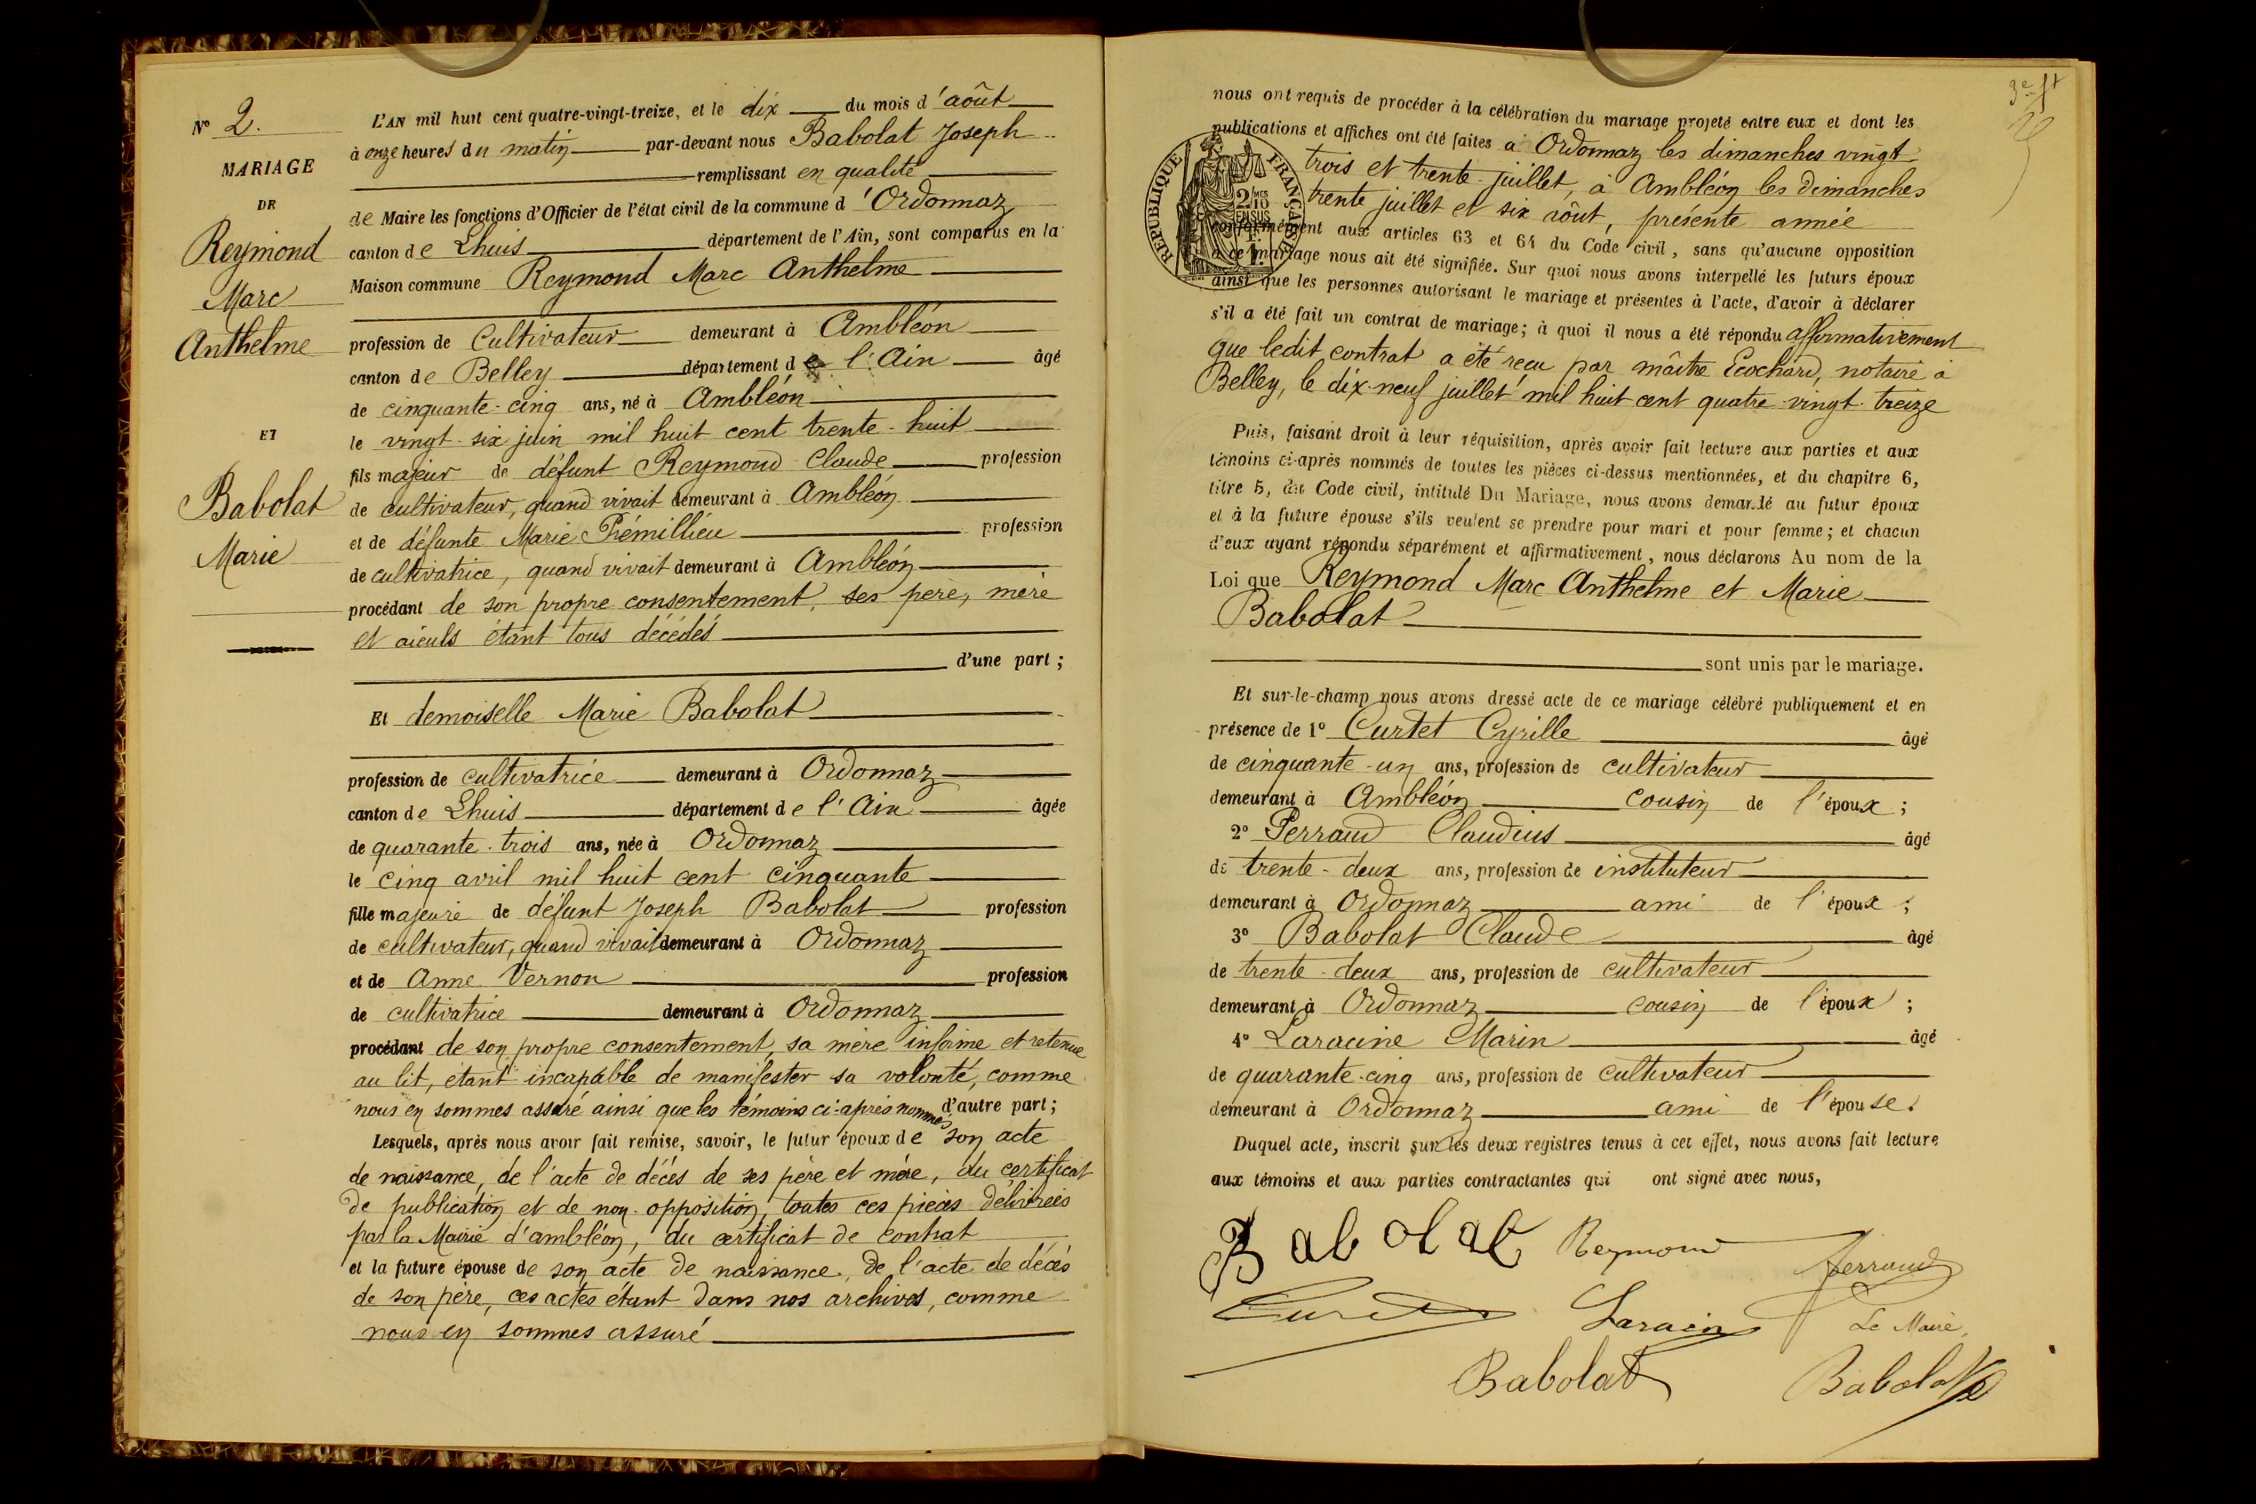 N° 2.
MARIAGE
DE
Reymond
Marc
Anthelme
ET
Babolat
Marie
L'AN mil huit cent quatre-vingt-treize, et le dix du mois d'août
à onze heures du matin par-devant nous Babolat Joseph
remplissant en qualité
de Maire les fonctions d'Officier de l'état civil de la commune d'Ordonnaz
canton de Lhuis département de l'Ain, sont comparus en la
Maison commune Reymond Marc Anthelme
profession de Cultivateur demeurant à Ambléon
canton de Belley département de l'Ain âgé
de cinquante-cinq ans, né à Ambléon
le vingt-six juin mil huit cent trente-huit
fils majeur de défunt Reymond Claude profession
de cultivateur, quand vivait demeurant à Ambléon
et de défunte Marie Prémillieu profession
de cultivatrice, quand vivait demeurant à Ambléon
procédant de son propre consentement, ses père, mère
et aïeuls étant tous décédés
d'une part ;
Et demoiselle Marie Babolat
profession de cultivatrice demeurant à Ordonnaz
canton de Lhuis département de l'Ain âgée
de quarante-trois ans, née à Ordonnaz
le cinq avril mil huit cent cinquante
fille majeure de défunt Joseph Babolat profession
de cultivateur, quand vivait demeurant à Ordonnaz
et de Anne Vernon profession
de cultivatrice demeurant à Ordonnaz
procédant de son propre consentement, sa mère infirme et retenue
au lit, étant incapable de manifester sa volonté, comme
nous en sommes assuré ainsi que les témoins ci-après nommés d'autre part ;
Lesquels, après nous avoir fait remise, savoir, le futur époux de son acte
de naissance, de l'acte de décès de ses père et mère, du certificat
de publication et de non-opposition, toutes ces pièces délivrées
par la Mairie d'ambléon, du certificat de contrat
et la future épouse de son acte de naissance, de l'acte de décès
de son père, ces actes étant dans nos archives, comme
nous en sommes assuré
nous ont requis de procéder à la célébration du mariage projeté entre eux et dont les
publications et affiches ont été faites à Ordonnaz les dimanches vingt-
trois et trente juillet, à Ambléon les dimanches
trente juillet et six août, présente année
conformément aux articles 63 et 64 du Code civil, sans qu'aucune opposition
à ce mariage nous ait été signifiée. Sur quoi nous avons interpellé les futurs époux
ainsi que les personnes autorisant le mariage et présentes à l'acte, d'avoir à déclarer
s'il a été fait un contrat de mariage ; à quoi il nous a été répondu affirmativement
que ledit contrat a été reçu par maître Ecochard, notaire à
Belley, le dix-neuf juillet mil huit cent quatre-vingt-treize
RÉPUBLIQUE FRANÇAISE
2/10 MES
EN SUS
1 F.
Puis, faisant droit à leur réquisition, après avoir fait lecture aux parties et aux
témoins ci-après nommés de toutes les pièces ci-dessus mentionnées, et du chapitre 6,
titre 5, du Code civil, intitulé Du Mariage, nous avons demandé au futur époux
et à la future épouse s'ils veulent se prendre pour mari et pour femme ; et chacun
d'eux ayant répondu séparément et affirmativement, nous déclarons Au nom de la
Loi que Reymond Marc Anthelme et Marie
Babolat
sont unis par le mariage.
Et sur-le-champ nous avons dressé acte de ce mariage célébré publiquement et en
présence de 1° Curtet Cyrille âgé
de cinquante-un ans, profession de cultivateur
demeurant à Ambléon cousin de l'époux ;
2° Perraud Claudius âgé
de trente-deux ans, profession de instituteur
demeurant à Ordonnaz ami de l'époux ;
3° Babolat Claude âgé
de trente-deux ans, profession de cultivateur
demeurant à Ordonnaz cousin de l'époux ;
4° Laracine Marin âgé
de quarante-cinq ans, profession de cultivateur
demeurant à Ordonnaz ami de l'épouse.
Duquel acte, inscrit sur les deux registres tenus à cet effet, nous avons fait lecture
aux témoins et aux parties contractantes qui ont signé avec nous,
Babolat Reymond Perraud
Curtet Laracin Le Maire,
Babolat Babolat